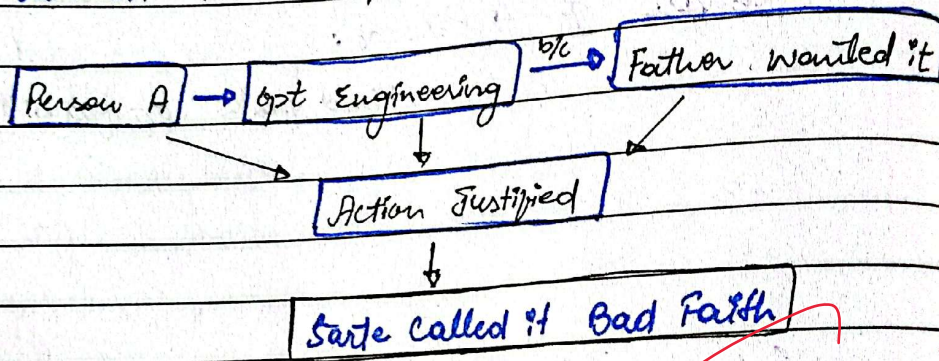 Person A → opt Engineering b/c → Father wanted it
Action Justified
Sarte called it Bad Faith